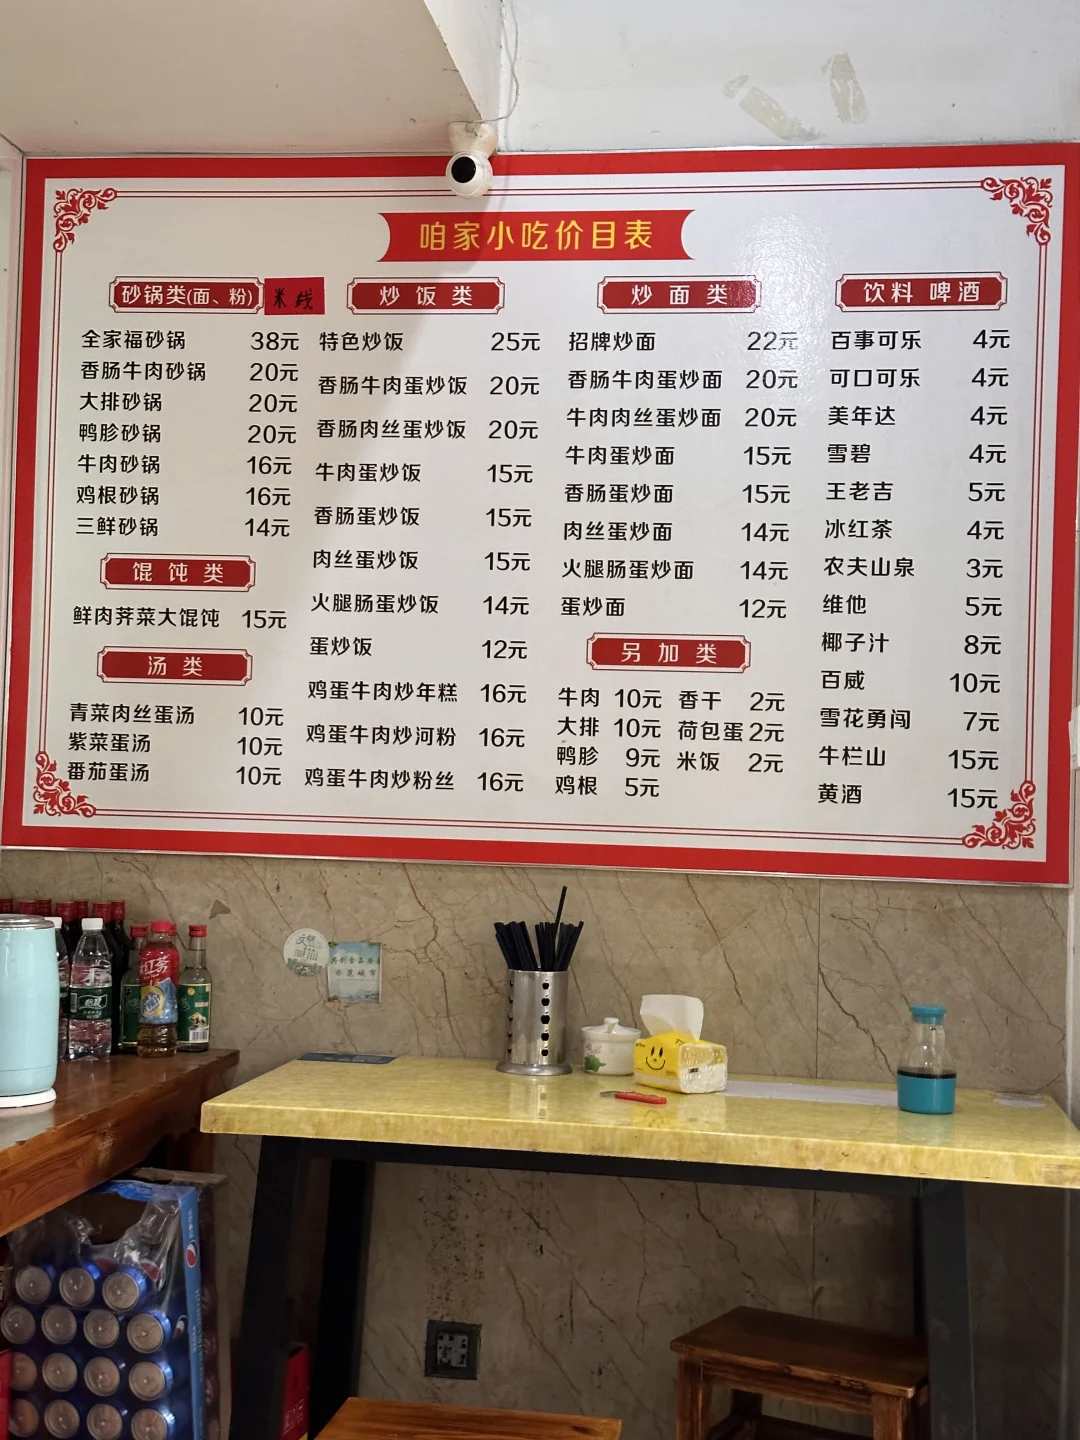 咱家小吃价目表
砂锅类(面、粉) 米线
全家福砂锅 38元
香肠牛肉砂锅 20元
大排砂锅 20元
鸭胗砂锅 20元
牛肉砂锅 16元
鸡根砂锅 16元
三鲜砂锅 14元
馄饨类
鲜肉荠菜大馄饨 15元
汤类
青菜肉丝蛋汤 10元
紫菜蛋汤 10元
番茄蛋汤 10元
炒饭类
特色炒饭 25元
香肠牛肉蛋炒饭 20元
香肠肉丝蛋炒饭 20元
牛肉蛋炒饭 15元
香肠蛋炒饭 15元
肉丝蛋炒饭 15元
火腿肠蛋炒饭 14元
蛋炒饭 12元
鸡蛋牛肉炒年糕 16元
鸡蛋牛肉炒河粉 16元
鸡蛋牛肉炒粉丝 16元
炒面类
招牌炒面 22元
香肠牛肉蛋炒面 20元
牛肉肉丝蛋炒面 20元
牛肉蛋炒面 15元
香肠蛋炒面 15元
肉丝蛋炒面 14元
火腿肠蛋炒面 14元
蛋炒面 12元
另加类
牛肉 10元 香干 2元
大排 10元 荷包蛋 2元
鸭胗 9元 米饭 2元
鸡根 5元
饮料 啤酒
百事可乐 4元
可口可乐 4元
美年达 4元
雪碧 4元
王老吉 5元
冰红茶 4元
农夫山泉 3元
维他 5元
椰子汁 8元
百威 10元
雪花勇闯 7元
牛栏山 15元
黄酒 15元
怡宝
红茶